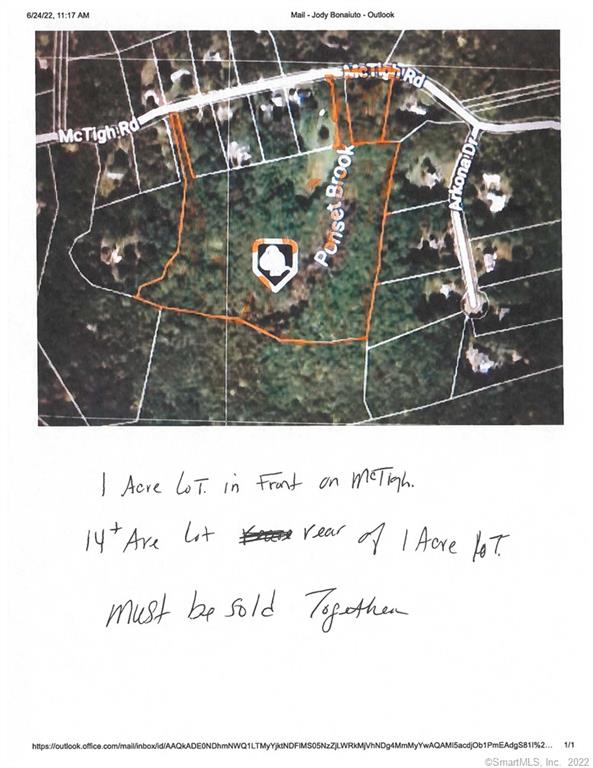 6/24/22, 11:17 AM Mail - Jody Bonaiuto - Outlook
McTigh Rd
McTigh Rd
Arkona Dr
Punset Brook
1 Acre LoT. in Front on McTigh.
14+ Are Lot rear of 1 Acre LoT.
Must be sold Together
https://outlook.office.com/mail/inbox/id/AAQkADE0NDhmNWQ1LTMyYjktNDFlMS05NzZjLWRkMjVhNDg4MmMyYwAQAMI5acdjOb1PmEAdgS81l%2... 1/1
©SmartMLS, Inc. 2022